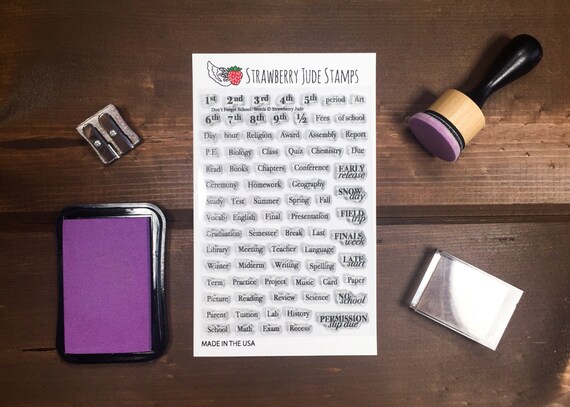 STRAWBERRY JUDE STAMPS
1st 2nd 3rd 4th 5th period Art
Don't Forget School Words © Strawberry Jude
6th 7th 8th 9th ½ Fees of school
Day hour Religion Award Assembly Report
P.E. Biology Class Quiz Chemistry Due
Read Books Chapters Conference EARLY release
Ceremony Homework Geography
Study Test Summer Spring Fall SNOW day
Vocab English Final Presentation FIELD trip
Graduation Semester Break Last FINALS week
Library Meeting Teacher Language
Winter Midterm Writing Spelling LATE start
Term Practice Project Music Card Paper
Picture Reading Review Science NO school
Parent Tuition Lab History PERMISSION slip due
School Math Exam Recess
MADE IN THE USA